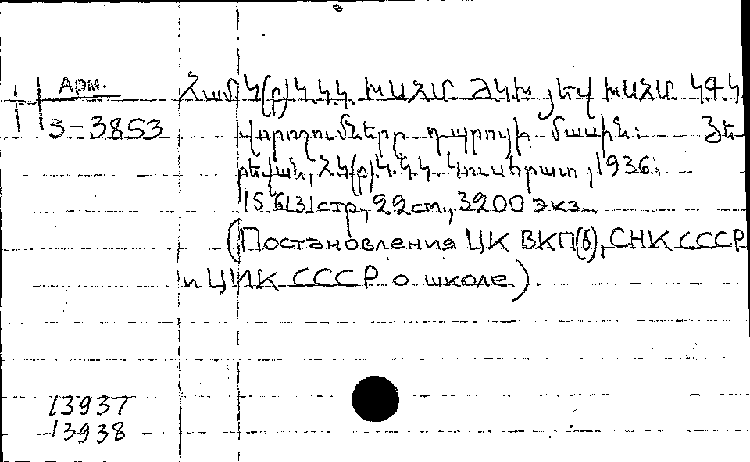 Арм.
3-3853
Համ Կ(բ)Կ.ԿԿ. ԽՍՀՄ ԺԿԽ յեվ ԽՍՀՄ ԿԳԿ
վորոշումները դպրոցի մասին: Յե-
րեվան, ՀԿ(բ)Կ.Կ.Կ. Կուսհրատ, 1936.
131 стр, 22 см, 3200 экз.
(Постановления ЦК ВКП(б), СНК СССР
и ЦИК СССР о школе)
13937
13938